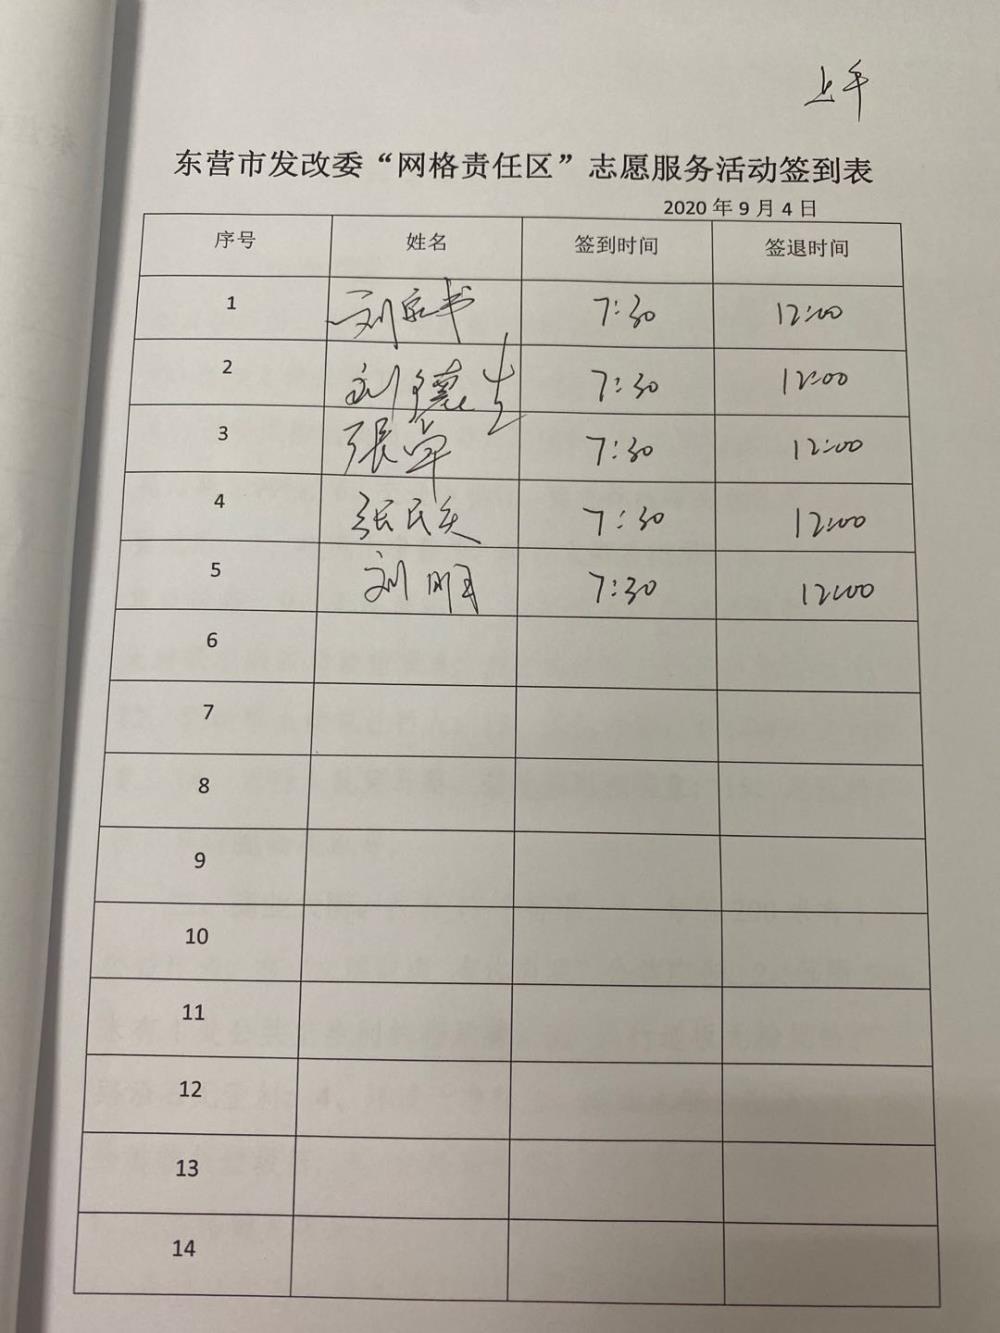 上午
东营市发改委“网格责任区”志愿服务活动签到表
2020 年 9 月 4 日
序号 姓名 签到时间 签退时间
1 刘 书 7:30 12:00
2 刘德生 7:30 12:00
3 張卓 7:30 12:00
4 张民 7:30 12:00
5 刘明 7:30 12:00
6
7
8
9
10
11
12
13
14